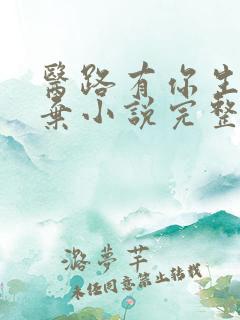 醫路有你生
棄小說完整
潞夢芊
未経同意禁止轉載